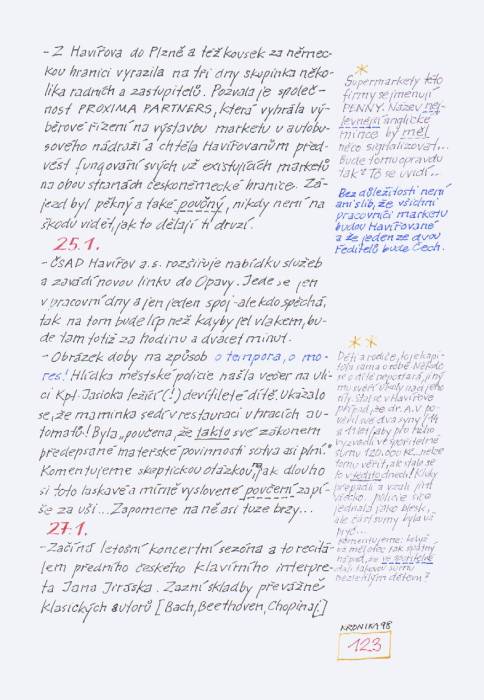 - Z Havířova do Plzně a též kousek za němec-
kou hranici vyrazila na tři dny skupinka něko-
lika radních a zastupitelů. Pozvala je společ-
nost PROXIMA PARTNERS, která vyhrála vý-
běrové řízení na výstavbu marketu u autobu-
sového nádraží a chtěla Havířovanům před-
vést fungování svých už existujících marketů
na obou stranách českoněmecké hranice. Zá-
jezd byl pěkný a také poučný, nikdy není na
škodu vidět, jak to dělají ti druzí.
25.1.
- ČSAD Havířov a.s. rozšiřuje nabídku služeb
a zavádí novou linku do Opavy. Jede se jen
v pracovní dny a jen jeden spoj - ale kdo spěchá,
tak na tom bude líp než kdyby jel vlakem, bu-
de tam totiž za hodinu a dvacet minut.
- Obrázek doby na způsob o tempora, o mo-
res! Hlídka městské policie našla večer na uli-
ci Kpt. Jasioka ležící (!) devítileté dítě. Ukázalo
se, že maminka sedí v restauraci u hracích au-
tomatů! Byla „poučena, že takto své zákonem
předepsané mateřské povinnosti sotva asi plní."
Komentujeme skeptickou otázkou, jak dlouho
si toto laskavé a mírně vyslovené poučení zapí-
še za uši... Zapomene na ně asi tuze brzy...
27.1.
- Začíná letošní koncertní sezóna a to recitá-
lem předního českého klavírního interpre-
ta Jana Jiraska. Zazní skladby převážně
klasických autorů [Bach, Beethoven, Chopin a[.]
*
Supermarkety této
firmy se jmenují
PENNY. Název nej-
levnější anglické
mince by měl
něco signalizovat...
Bude tomu opravdu
tak? To se uvidí...
Bez důležitosti není
ani slib, že všichni
pracovníci marketu
budou Havířované
a že jeden ze dvou
ředitelů bude Čech.
**
Děti a rodiče, to je kapi-
tola sama o sobě. Někde
se o dítě nepostará, jiný
mu svěří úkoly nad jeho
síly. Stal se v Havířově
případ, že dr. A.V. po-
věřil své dva syny /14
a 11 let/ aby pro něho
vyzvedli ve spořitelně
sumu 120.000 Kč...
tomu věřit, ale stalo se
to v těchto dnech! Kluky
přepadli a vzali jim
všecko. Policie sice
jednala jako blesk,
ale část sumy byla už
pryč...
Komentujeme: když
už měl otec tak špatný
nápad, že ve spořitelně
dali takovou sumu
nezletilým dětem?
KRONIKA 98
123